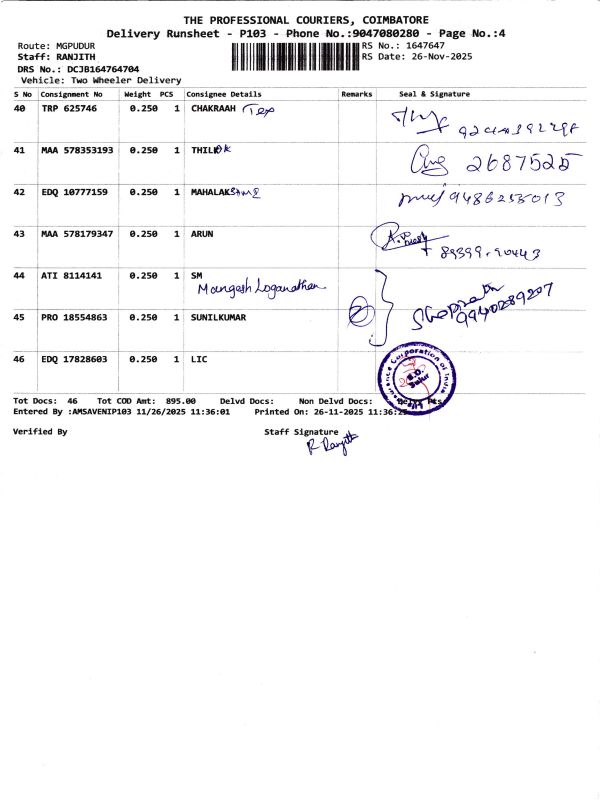 THE PROFESSIONAL COURIERS, COIMBATORE
Delivery Runsheet - P103 - Phone No.:9047080280 - Page No.:4
Route: MGPUDUR RS No.: 1647647
Staff: RANJITH RS Date: 26-Nov-2025
DRS No.: DCJB164764704
Vehicle: Two Wheeler Delivery
S No Consignment No Weight PCS Consignee Details Remarks Seal & Signature
40 TRP 625746 0.250 1 CHAKRAAH Tex
41 MAA 578353193 0.250 1 THILK 2687525
42 EDQ 10777159 0.250 1 MAHALAKSHMI 9486255013
43 MAA 578179347 0.250 1 ARUN 89399.90443
44 ATI 8114141 0.250 1 SM
Mangesh Loganathan
9940289207
45 PRO 18554863 0.250 1 SUNILKUMAR 2
46 EDQ 17828603 0.250 1 LIC
Corporation of India
S.O.
Sulur
Tot Docs: 46 Tot COD Amt: 895.00 Delvd Docs: Non Delvd Docs:
Entered By :AMSAVENIP103 11/26/2025 11:36:01 Printed On: 26-11-2025 11:36:
Verified By Staff Signature
R Ranjith